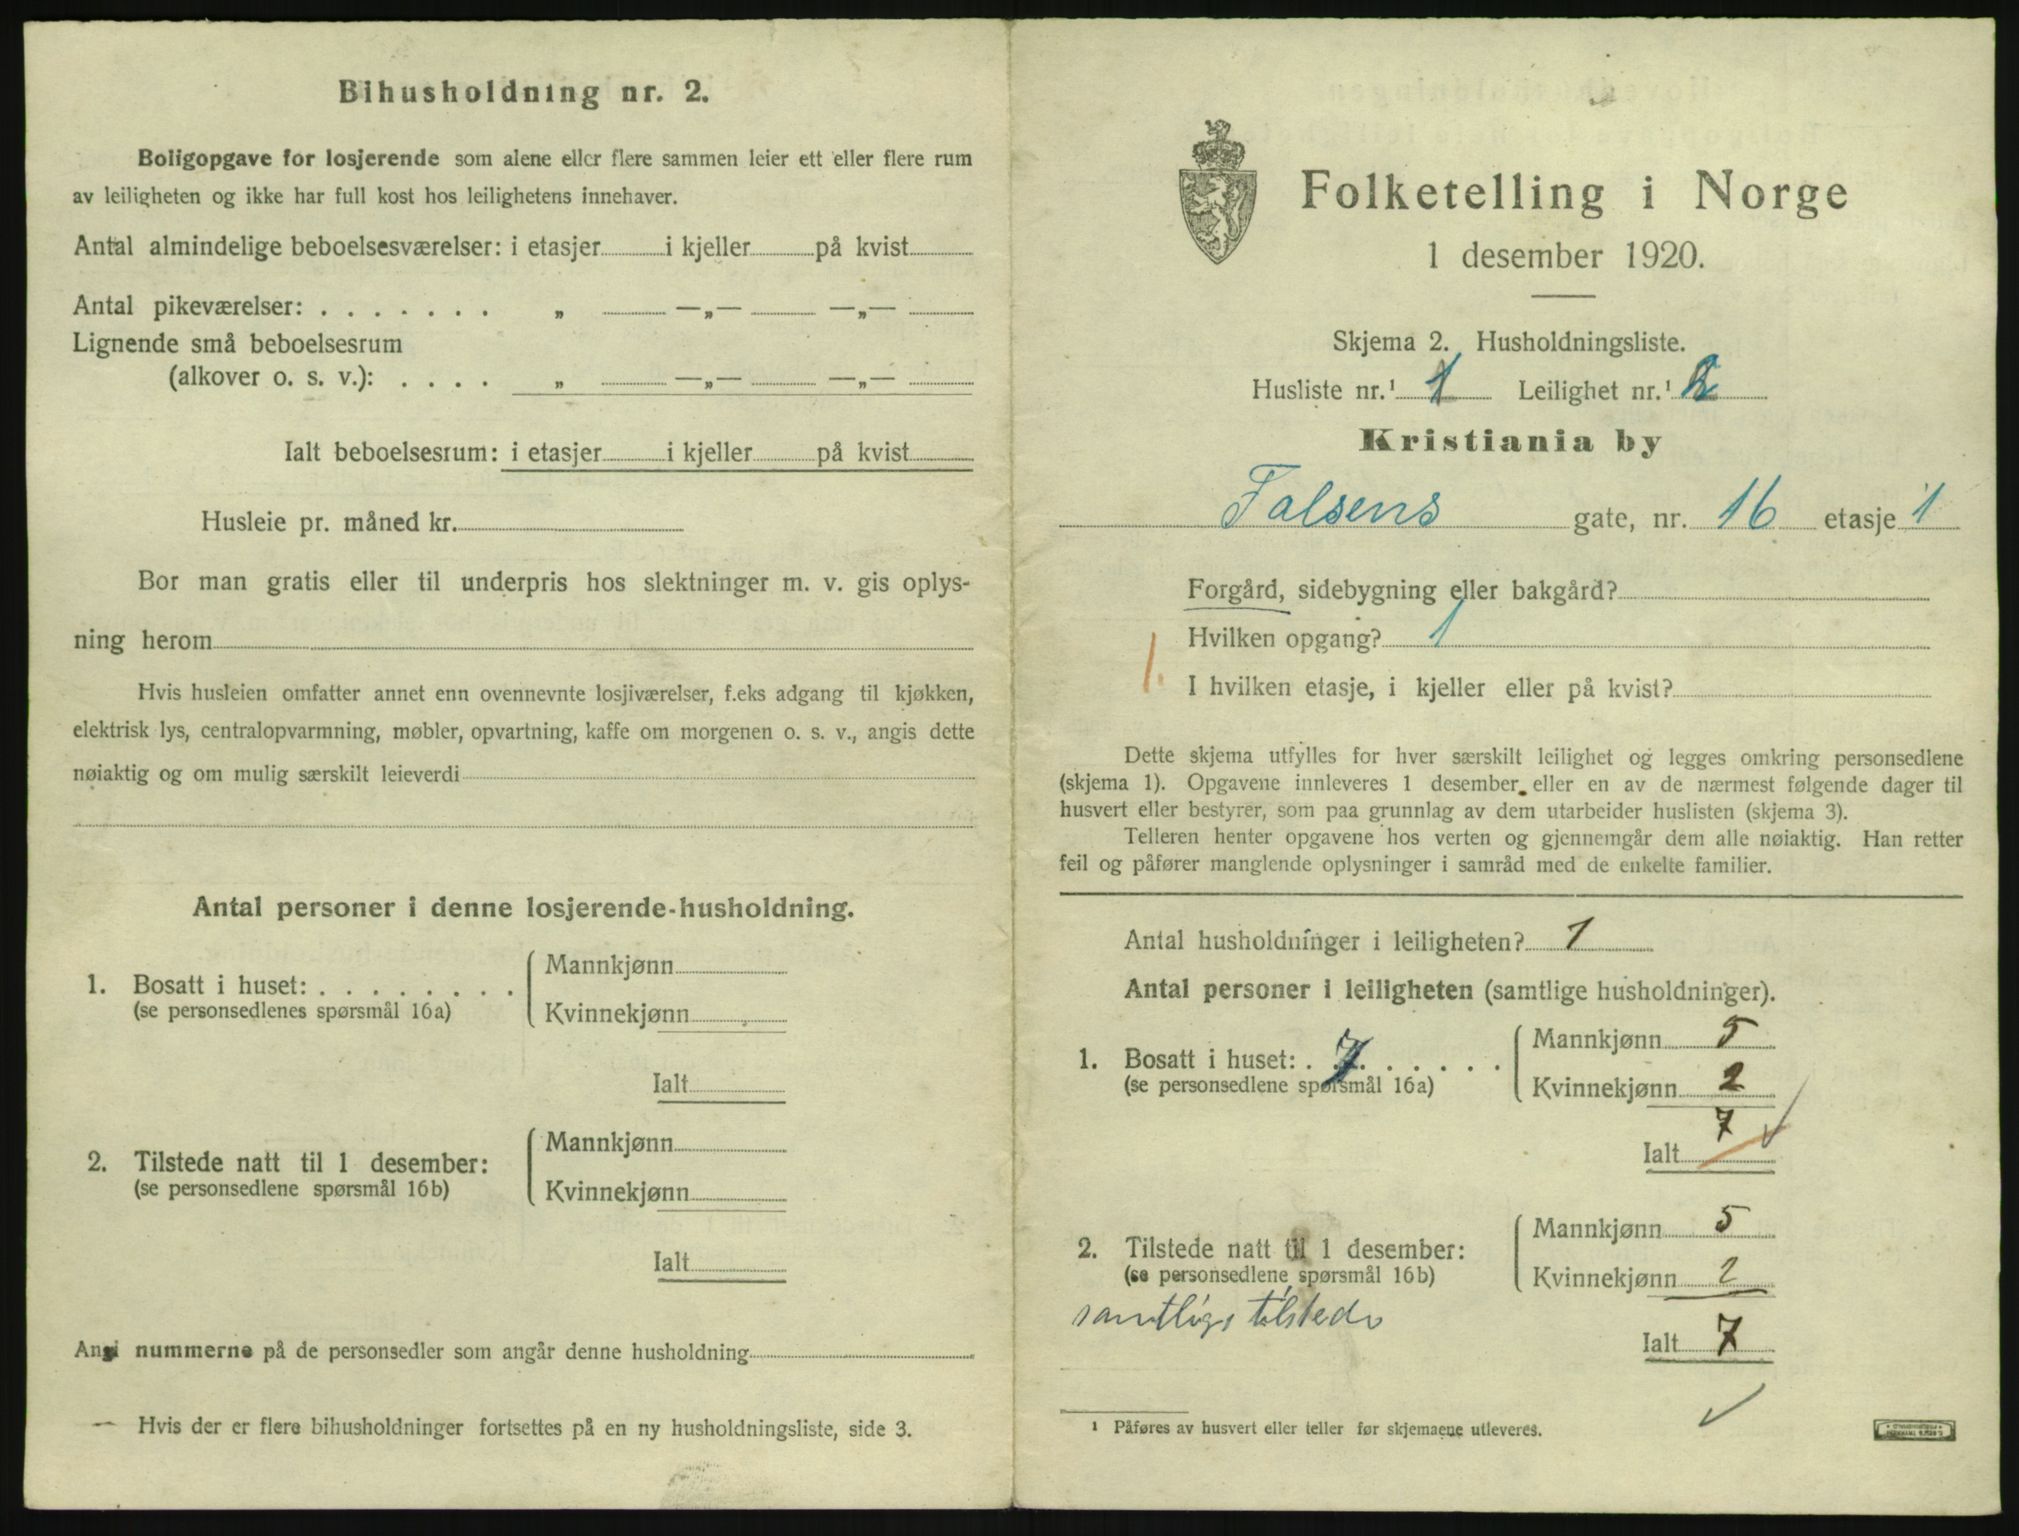 Bihusholdning nr. 2.
Boligopgave for losjerende som alene eller flere sammen leier ett eller flere rum
av leiligheten og ikke har full kost hos leilighetens innehaver.
Antal almindelige beboelsesværelser: i etasjer i kjeller på kvist
Antal pikeværelser: . . . . . . . „ —„— —„—
Lignende små beboelsesrum
(alkover o. s. v.): . . . . „ —„— —„—
Ialt beboelsesrum: i etasjer i kjeller på kvist
Husleie pr. måned kr.
Bor man gratis eller til underpris hos slektninger m. v. gis oplys-
ning herom
Hvis husleien omfatter annet enn ovennevnte losjiværelser, f.eks adgang til kjøkken,
elektrisk lys, centralopvarmning, møbler, opvartning, kaffe om morgenen o. s. v., angis dette
nøiaktig og om mulig særskilt leieverdi
Antal personer i denne losjerende-husholdning.
1. Bosatt i huset: . . . . . . . . Mannkjønn
(se personsedlenes spørsmål 16a) Kvinnekjønn
Ialt
2. Tilstede natt til 1 desember: Mannkjønn
(se personsedlene spørsmål 16b) Kvinnekjønn
Ialt
Angi nummerne på de personsedler som angår denne husholdning
— Hvis der er flere bihusholdninger fortsettes på en ny husholdningsliste, side 3.
Folketelling i Norge
1 desember 1920.
Skjema 2. Husholdningsliste.
Husliste nr.¹ 1 Leilighet nr.¹ 2
Kristiania by
Falsens gate, nr. 16 etasje 1
Forgård, sidebygning eller bakgård?
Hvilken opgang? 1
1. I hvilken etasje, i kjeller eller på kvist?
Dette skjema utfylles for hver særskilt leilighet og legges omkring personsedlene
(skjema 1). Opgavene innleveres 1 desember eller en av de nærmest følgende dager til
husvert eller bestyrer, som paa grunnlag av dem utarbeider huslisten (skjema 3).
Telleren henter opgavene hos verten og gjennemgår dem alle nøiaktig. Han retter
feil og påfører manglende oplysninger i samråd med de enkelte familier.
Antal husholdninger i leiligheten? 1
Antal personer i leiligheten (samtlige husholdninger).
1. Bosatt i huset: . 7 . . . . . . Mannkjønn 5
(se personsedlene spørsmål 16a) Kvinnekjønn 2
Ialt 7
2. Tilstede natt til 1 desember: Mannkjønn 5
(se personsedlene spørsmål 16b) Kvinnekjønn 2
samtlige tilstede
Ialt 7
¹ Påføres av husvert eller teller før skjemaene utleveres.